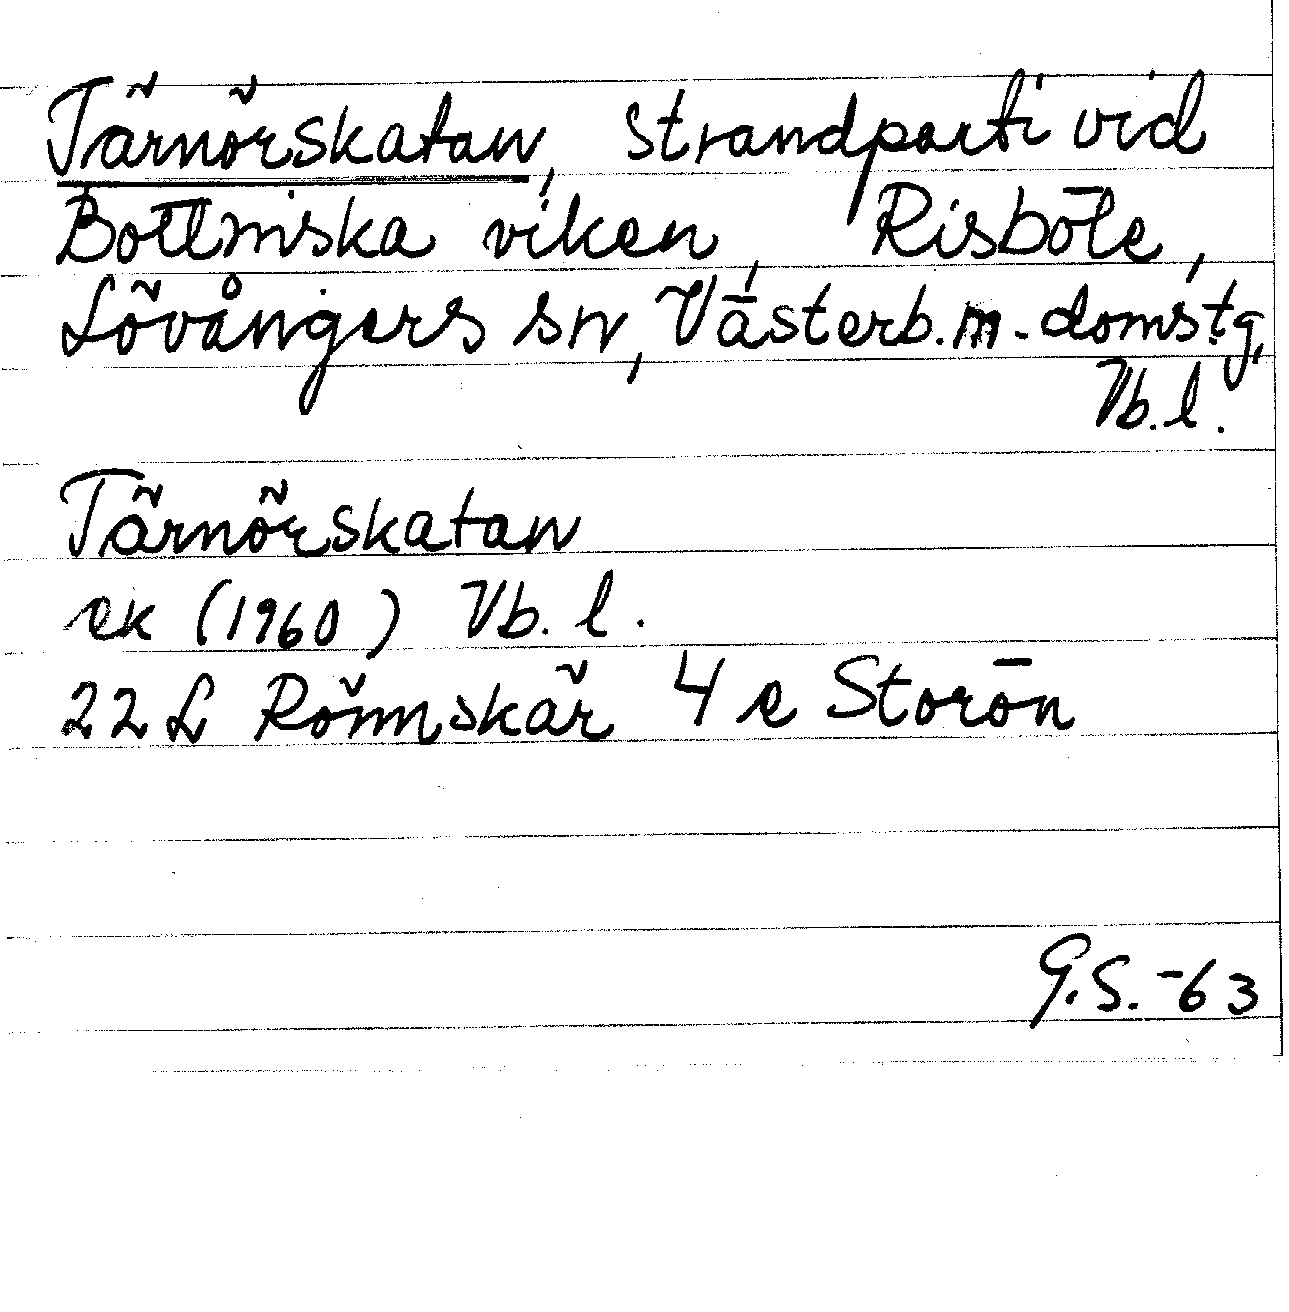 Tärnörskatan, strandparti vid
Bottniska viken, Risböle,
Lövångers sn, Västerb.m-domstg,
Vb.l.
Tärnörskatan
ek (1960) Vb. l.
22 L Rönnskär 4 e Storön
G.S. -63